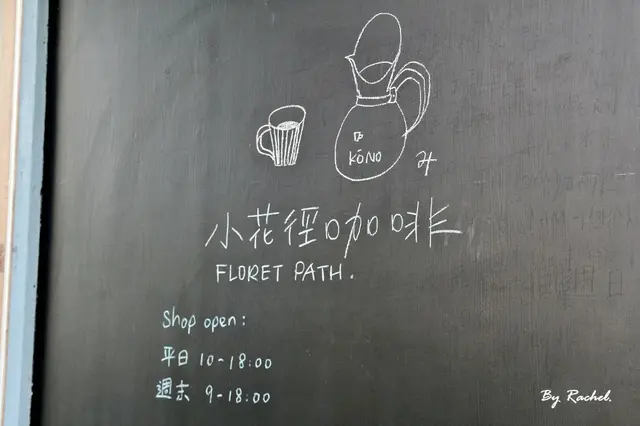 KŌNO
み
小花徑咖啡
FLORET PATH.
Shop open:
平日 10-18:00
週末 9-18:00
By Rachel.